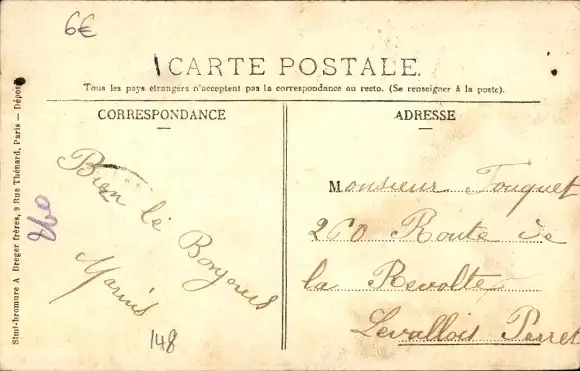 6€
CARTE POSTALE.
Tous les pays étrangers n'acceptent pas la correspondance au recto. (Se renseigner à la poste).
CORRESPONDANCE
ADRESSE
Simi-bromure A Breger frères, 9 Rue Thénard, Paris — Déposé
Bien le Bonjours
Marius
148
Monsieur Fouquet
260 Route de
la Revolte
Levallois Perret